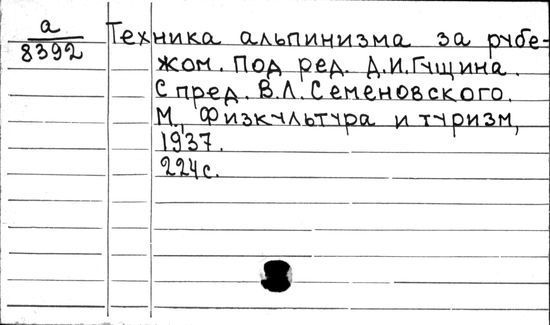 а
8392
Техника альпинизма за рубе-
жом. Под ред. Д.И.Гущина.
С пред. В.Л.Семеновского.
М., Физкультура и туризм,
1937.
224с.